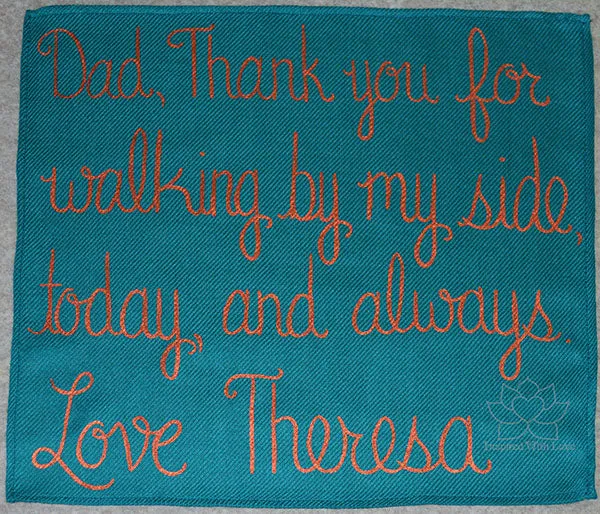 Dad, Thank you for
walking by my side,
today, and always.
Love Theresa
Inspired With Love